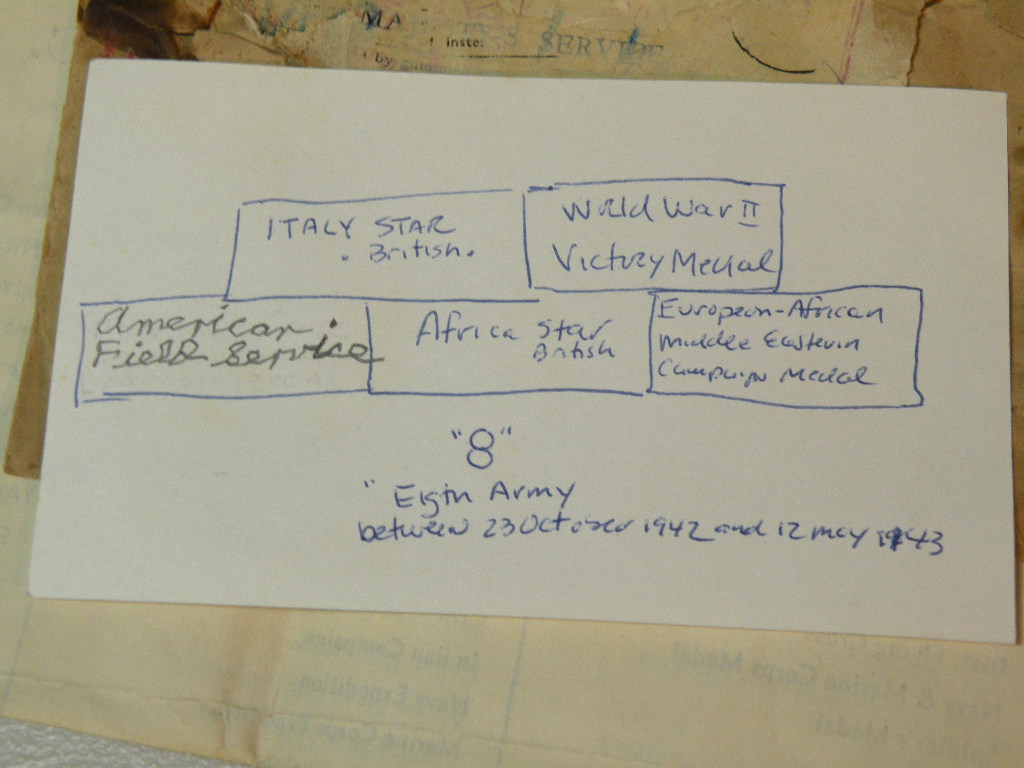 MA
inste
SERVICE
by
ITALY STAR
. British.
World War II
Victory Medal
American.
Field Service
Africa Star
British
European-African
Middle Eastern
Campaign Medal
"8"
" Eigth Army
between 23 October 1942 and 12 may 1943
Indian Campaign
Navy Expedition
Marine Corps Expedition
Navy & Marine Corps Medal
Soldier's Medal